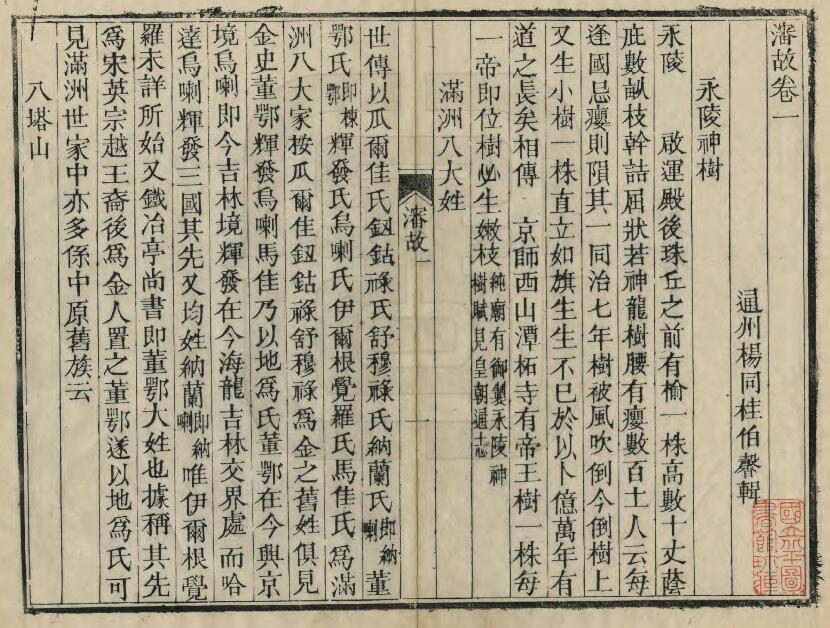 瀋故卷一
通州楊同桂伯馨輯
永陵神樹
永陵　啟運殿後珠丘之前有榆一株高數十丈蔭
庇數畝枝幹詰屈狀若神龍樹腰有癭數百土人云每
逢國忌癭則隕其一同治七年樹被風吹倒今倒樹上
又生小樹一株直立如旗生生不已於以卜億萬年有
道之長矣相傳　京師西山潭柘寺有帝王樹一株每
一帝即位樹必生嫩枝純廟有御製永陵神樹賦見皇朝通志
滿洲八大姓
世傳以瓜爾佳氏鈕鈷祿氏舒穆祿氏納蘭氏即納喇董
鄂氏即棟鄂輝發氏烏喇氏伊爾根覺羅氏馬佳氏爲滿
洲八大家按瓜爾佳鈕鈷祿舒穆祿爲金之舊姓俱見
金史董鄂輝發烏喇馬佳乃以地爲氏董鄂在今興京
境烏喇即今吉林境輝發在今海龍吉林交界處而哈
達烏喇輝發三國其先又均姓納蘭即納喇唯伊爾根覺
羅未詳所始又鐵冶亭尚書即董鄂大姓也據稱其先
爲宋英宗越王裔後爲金人置之董鄂遂以地爲氏可
見滿洲世家中亦多係中原舊族云
八塔山
瀋故一
一